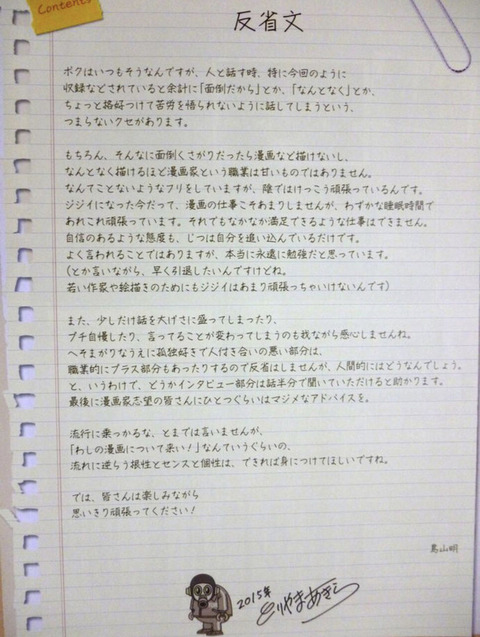 Contents
反省文
ボクはいつもそうなんですが、人と話す時、特に今回のように
収録などされていると余計に「面倒だから」とか、「なんとなく」とか、
ちょっと格好つけて苦労を悟られないように話してしまうという、
つまらないクセがあります。
もちろん、そんなに面倒くさがりだったら漫画など描けないし、
なんとなく描けるほど漫画家という職業は甘いものではありません。
なんてことないようなフリをしていますが、陰ではけっこう頑張っているんです。
ジジイになった今だって、漫画の仕事こそあまりしませんが、わずかな睡眠時間で
あれこれ頑張っています。それでもなかなか満足できるような仕事はできません。
自信のあるような態度も、じつは自分を追い込んでいるだけです。
よく言われることではありますが、本当に永遠に勉強だと思っています。
(とか言いながら、早く引退したいんですけどね。
若い作家や絵描きのためにもジジイはあまり頑張っちゃいけないんです)
また、少しだけ話を大げさに盛ってしまったり、
プチ自慢したり、言ってることが変わってしまうのも我ながら感心しませんね。
へそまがりなうえに孤独好きで人付き合いの悪い部分は、
職業的にプラス部分もあったりするので反省はしませんが、人間的にはどうなんでしょう。
と、いうわけで、どうかインタビュー部分は話半分で聞いていただけると助かります。
最後に漫画家志望の皆さんにひとつぐらいはマジメなアドバイスを。
流行に乗っかるな、とまでは言いませんが、
「わしの漫画について来い!」なんていうぐらいの、
流れに逆らう根性とセンスと個性は、できれば身につけてほしいですね。
では、皆さんは楽しみながら
思いきり頑張ってください!
鳥山明
2015年
とりやまあきら